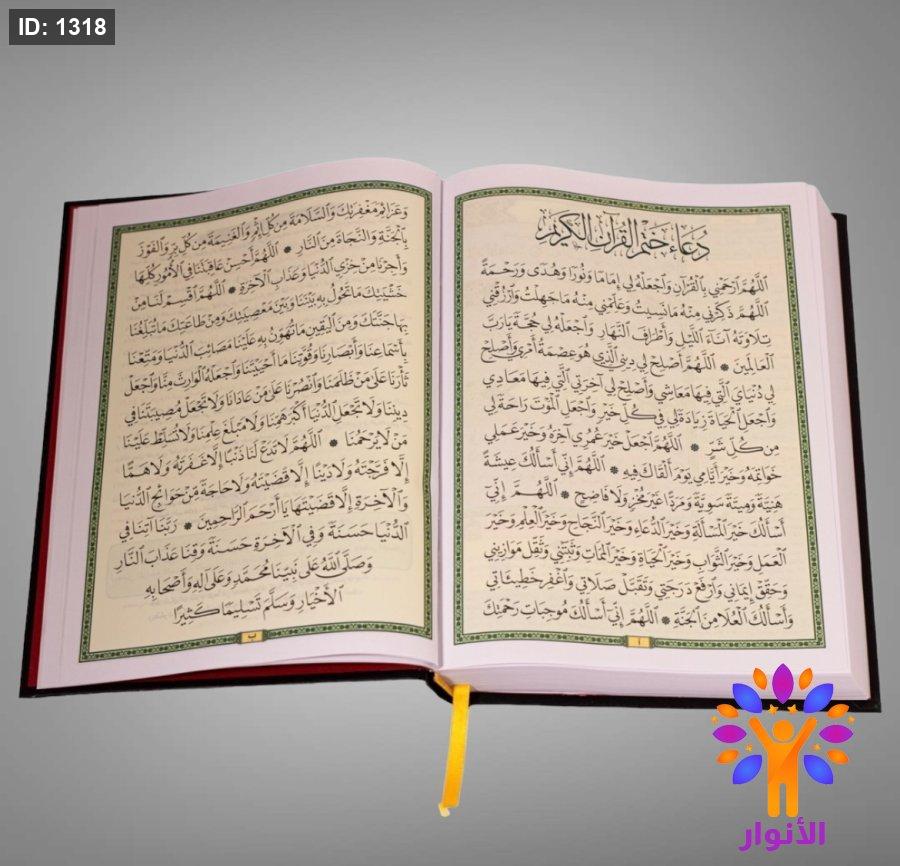 ID: 1318
دُعَاءُ خَتْمِ القُرْآنِ الكَرِيمِ
اللَّهُمَّ ارْحَمْنِي بِالْقُرْآنِ وَاجْعَلْهُ لِي إِمَامًا وَنُورًا وَهُدًى وَرَحْمَةً
اللَّهُمَّ ذَكِّرْنِي مِنْهُ مَا نَسِيتُ وَعَلِّمْنِي مِنْهُ مَا جَهِلْتُ وَارْزُقْنِي
تِلَاوَتَهُ آنَاءَ اللَّيْلِ وَأَطْرَافَ النَّهَارِ وَاجْعَلْهُ لِي حُجَّةً يَا رَبَّ
الْعَالَمِينَ * اللَّهُمَّ أَصْلِحْ لِي دِينِي الَّذِي هُوَ عِصْمَةُ أَمْرِي وَأَصْلِحْ
لِي دُنْيَايَ الَّتِي فِيهَا مَعَاشِي وَأَصْلِحْ لِي آخِرَتِي الَّتِي فِيهَا مَعَادِي
وَاجْعَلِ الْحَيَاةَ زِيَادَةً لِي فِي كُلِّ خَيْرٍ وَاجْعَلِ الْمَوْتَ رَاحَةً لِي
مِنْ كُلِّ شَرٍّ * اللَّهُمَّ اجْعَلْ خَيْرَ عُمْرِي آخِرَهُ وَخَيْرَ عَمَلِي
خَوَاتِمَهُ وَخَيْرَ أَيَّامِي يَوْمَ أَلْقَاكَ فِيهِ * اللَّهُمَّ إِنِّي أَسْأَلُكَ عِيشَةً
هَنِيَّةً وَمِيتَةً سَوِيَّةً وَمَرَدًّا غَيْرَ مُخْزٍ وَلَا فَاضِحٍ * اللَّهُمَّ إِنِّي
أَسْأَلُكَ خَيْرَ الْمَسْأَلَةِ وَخَيْرَ الدُّعَاءِ وَخَيْرَ النَّجَاحِ وَخَيْرَ الْعِلْمِ وَخَيْرَ
الْعَمَلِ وَخَيْرَ الثَّوَابِ وَخَيْرَ الْحَيَاةِ وَخَيْرَ الْمَمَاتِ وَثَبِّتْنِي وَثَقِّلْ مَوَازِينِي
وَحَقِّقْ إِيمَانِي وَارْفَعْ دَرَجَتِي وَتَقَبَّلْ صَلَاتِي وَاغْفِرْ خَطِيئَاتِي
وَأَسْأَلُكَ الْعُلَا مِنَ الْجَنَّةِ * اللَّهُمَّ إِنِّي أَسْأَلُكَ مُوجِبَاتِ رَحْمَتِكَ
أ
وَعَزَائِمَ مَغْفِرَتِكَ وَالسَّلَامَةَ مِنْ كُلِّ إِثْمٍ وَالْغَنِيمَةَ مِنْ كُلِّ بِرٍّ وَالْفَوْزَ
بِالْجَنَّةِ وَالنَّجَاةَ مِنَ النَّارِ * اللَّهُمَّ أَحْسِنْ عَاقِبَتَنَا فِي الْأُمُورِ كُلِّهَا
وَأَجِرْنَا مِنْ خِزْيِ الدُّنْيَا وَعَذَابِ الْآخِرَةِ * اللَّهُمَّ اقْسِمْ لَنَا مِنْ
خَشْيَتِكَ مَا تَحُولُ بِهِ بَيْنَنَا وَبَيْنَ مَعْصِيَتِكَ وَمِنْ طَاعَتِكَ مَا تُبَلِّغُنَا
بِهَا جَنَّتَكَ وَمِنَ الْيَقِينِ مَا تُهَوِّنُ بِهِ عَلَيْنَا مَصَائِبَ الدُّنْيَا وَمَتِّعْنَا
بِأَسْمَاعِنَا وَأَبْصَارِنَا وَقُوَّتِنَا مَا أَحْيَيْتَنَا وَاجْعَلْهُ الْوَارِثَ مِنَّا وَاجْعَلْ
ثَأْرَنَا عَلَى مَنْ ظَلَمَنَا وَانْصُرْنَا عَلَى مَنْ عَادَانَا وَلَا تَجْعَلْ مُصِيبَتَنَا فِي
دِينِنَا وَلَا تَجْعَلِ الدُّنْيَا أَكْبَرَ هَمِّنَا وَلَا مَبْلَغَ عِلْمِنَا وَلَا تُسَلِّطْ عَلَيْنَا
مَنْ لَا يَرْحَمُنَا * اللَّهُمَّ لَا تَدَعْ لَنَا ذَنْبًا إِلَّا غَفَرْتَهُ وَلَا هَمًّا
إِلَّا فَرَّجْتَهُ وَلَا دَيْنًا إِلَّا قَضَيْتَهُ وَلَا حَاجَةً مِنْ حَوَائِجِ الدُّنْيَا
وَالْآخِرَةِ إِلَّا قَضَيْتَهَا يَا أَرْحَمَ الرَّاحِمِينَ * رَبَّنَا آتِنَا فِي
الدُّنْيَا حَسَنَةً وَفِي الْآخِرَةِ حَسَنَةً وَقِنَا عَذَابَ النَّارِ
وَصَلَّى اللَّهُ عَلَى نَبِيِّنَا مُحَمَّدٍ وَعَلَى آلِهِ وَأَصْحَابِهِ
الْأَخْيَارِ وَسَلَّمَ تَسْلِيمًا كَثِيرًا
ب
الأنوار